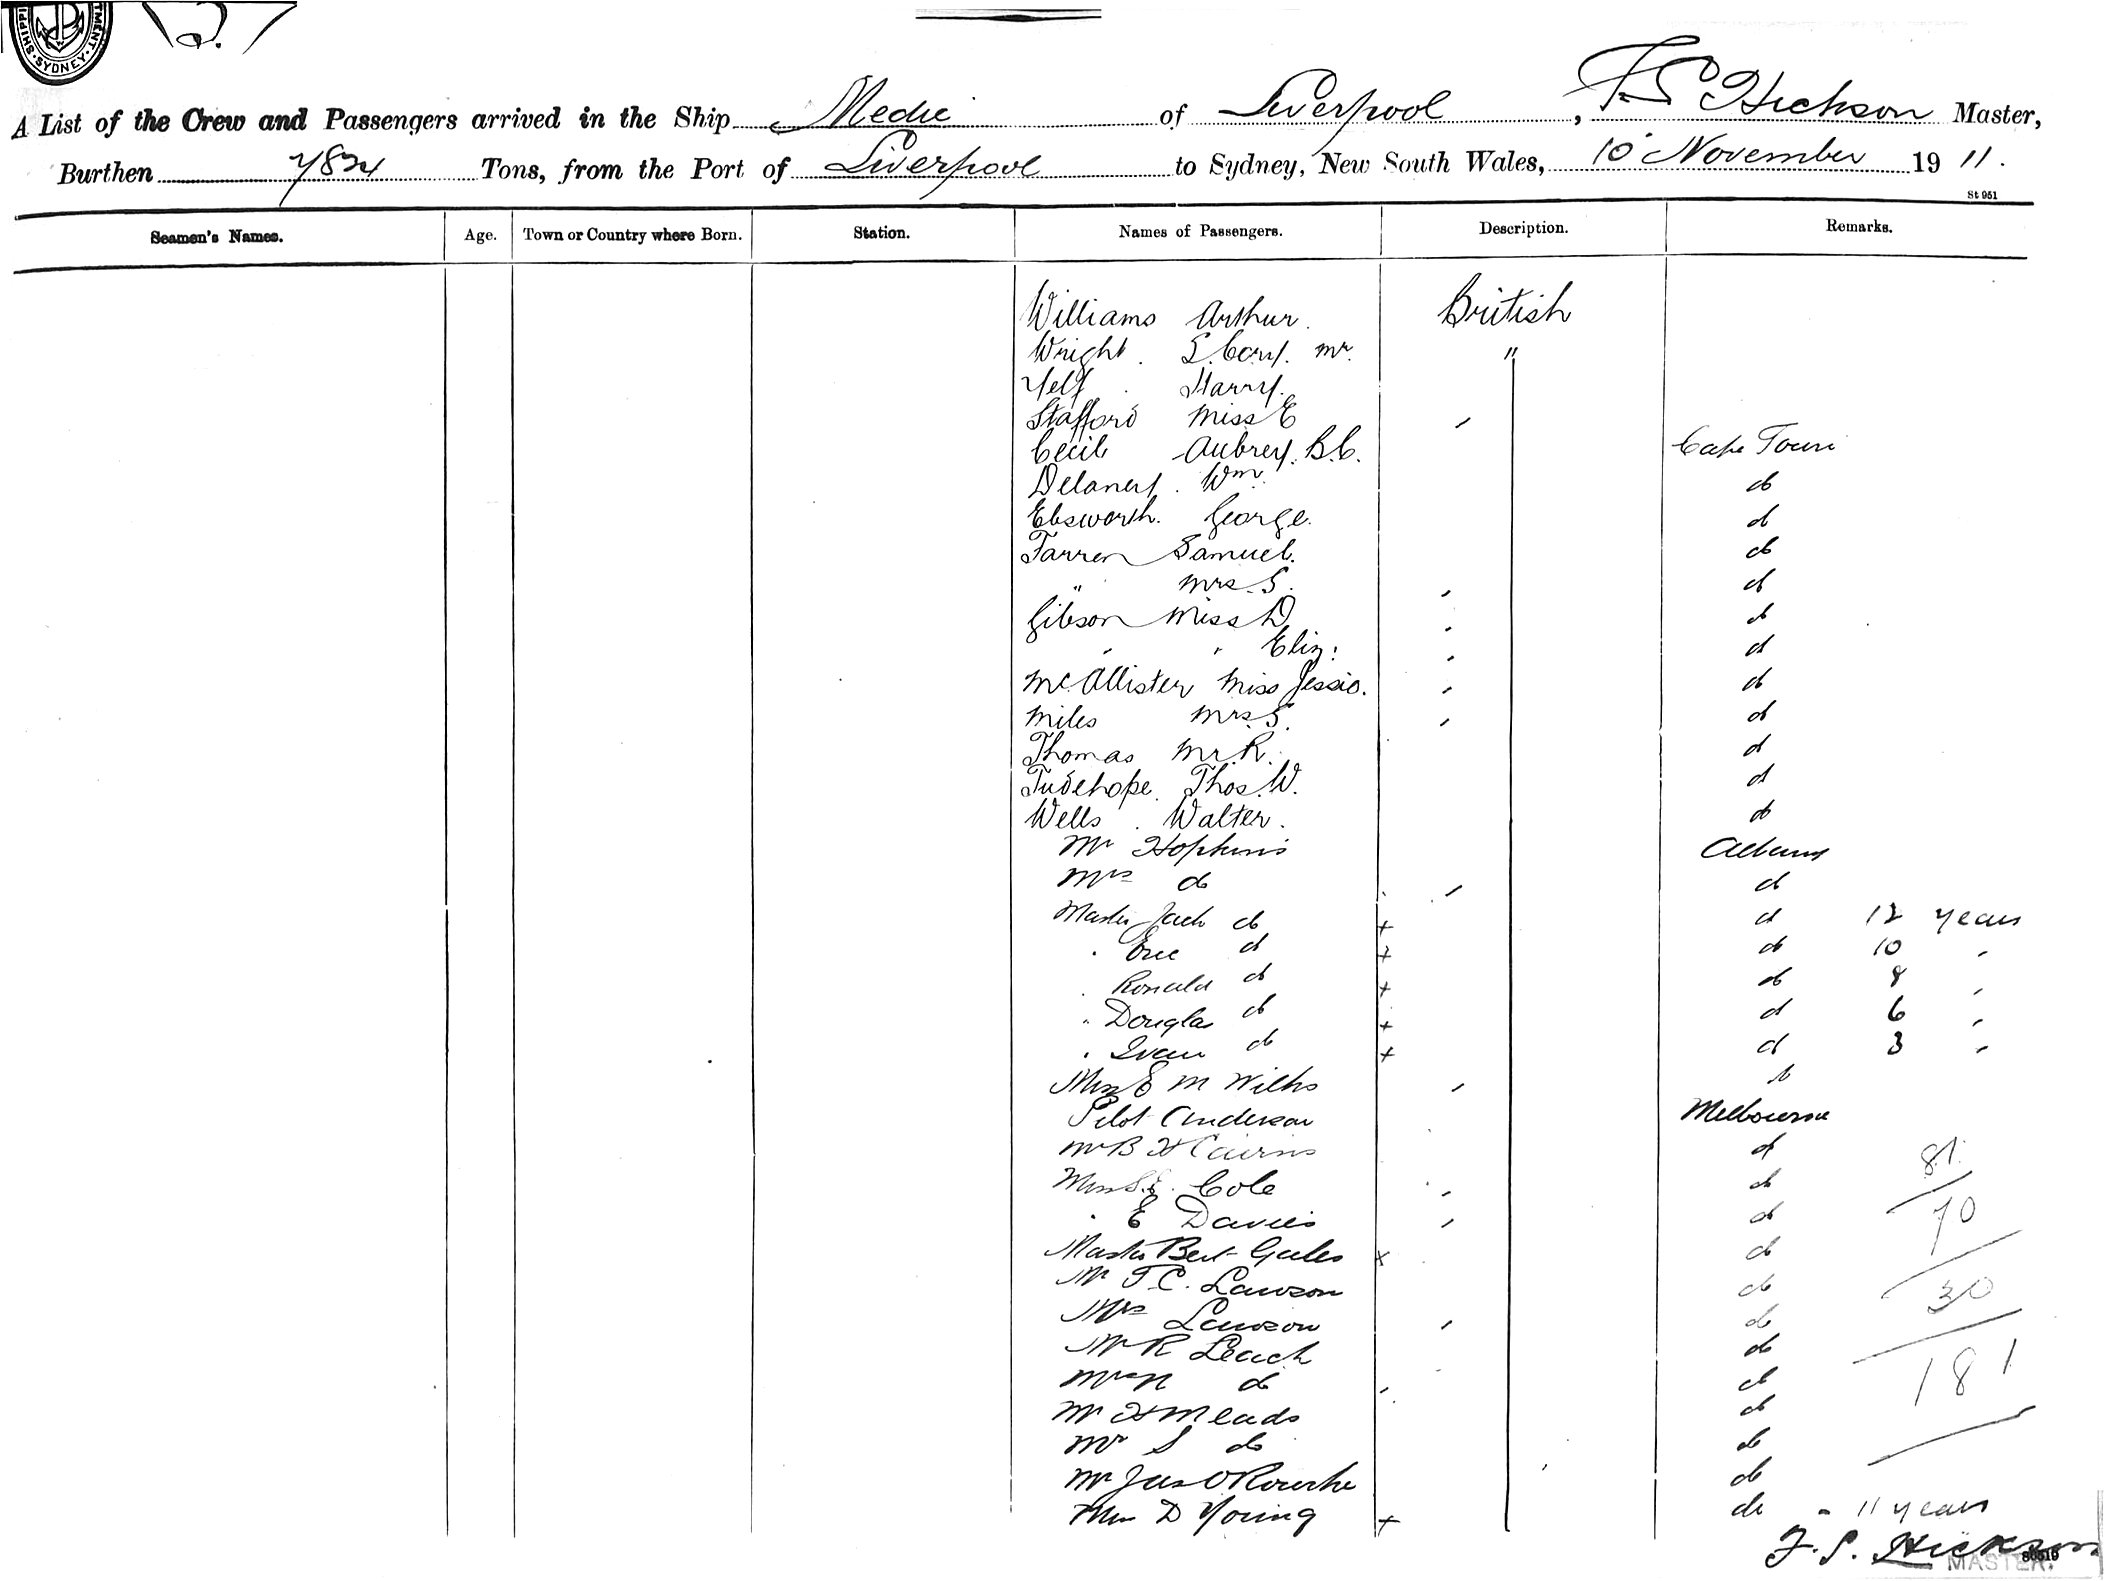 SHIPPI TMENT. SYDNEY.
A List of the Crew and Passengers arrived in the Ship Medic of Liverpool, F.S Hickson Master,
Burthen 7824 Tons, from the Port of Liverpool to Sydney, New South Wales, 10 November 19 11.
St 951
Seamen's Names. Age. Town or Country where Born. Station. Names of Passengers. Description. Remarks.
Williams Arthur. British
Wright. S. Cory. Mr. "
Yelf. Harry.
Stafford Miss E
Cecil Aubrey. B.C. Cape Town
Delaney. Wm. do
Ebsworth. George. do
Farren Samuel. do
" Mrs. S. do
Gibson Miss D do
" " Eliz: do
McAllister Miss Jessie. do
Miles Mrs. S. do
Thomas Mr. R. do
Tudehope. Thos. W. do
Wells. Walter. do
Mr Hopkins Albany
Mrs do do
Master Jack do + do 12 years
" Eric do + do 10 "
" Ronald do + do 8 "
" Douglas do + do 6 "
" Ivan do + do 3 "
Miss E M Wilks do
Pilot Anderson Melbourne
Mr B H Cairns do 81
Miss S.E. Cole do
" E Davies do 70
Master Bert Gales x do
Mr T C. Lawson do 30
Mrs Lawson do
Mr R Leach do
Mrs N do do 181
Mr H Meads do
Mr S do do
Mr Jas O'Rourke do
Miss D Young + do - 11 years
F. S. Hickson
MASTER.